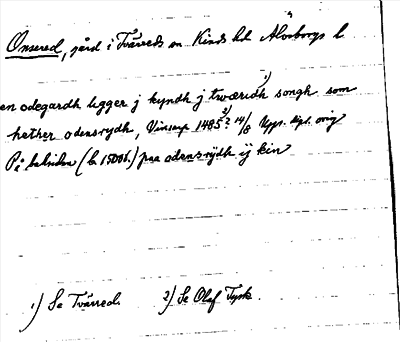 Onsered, gård i Tvärreds sn Kinds hd Älvsborgs l
en odegardh ligger j kyndh j twæridh 1) songh som
hether odensrydh, Vinsarp 1485 2)? 14/8 Upps. dipl. orig
På baksidan (b. 1500t.) paa odensrydh ij kin
1) Se Tvärred. 2) Se Olof Tysk.